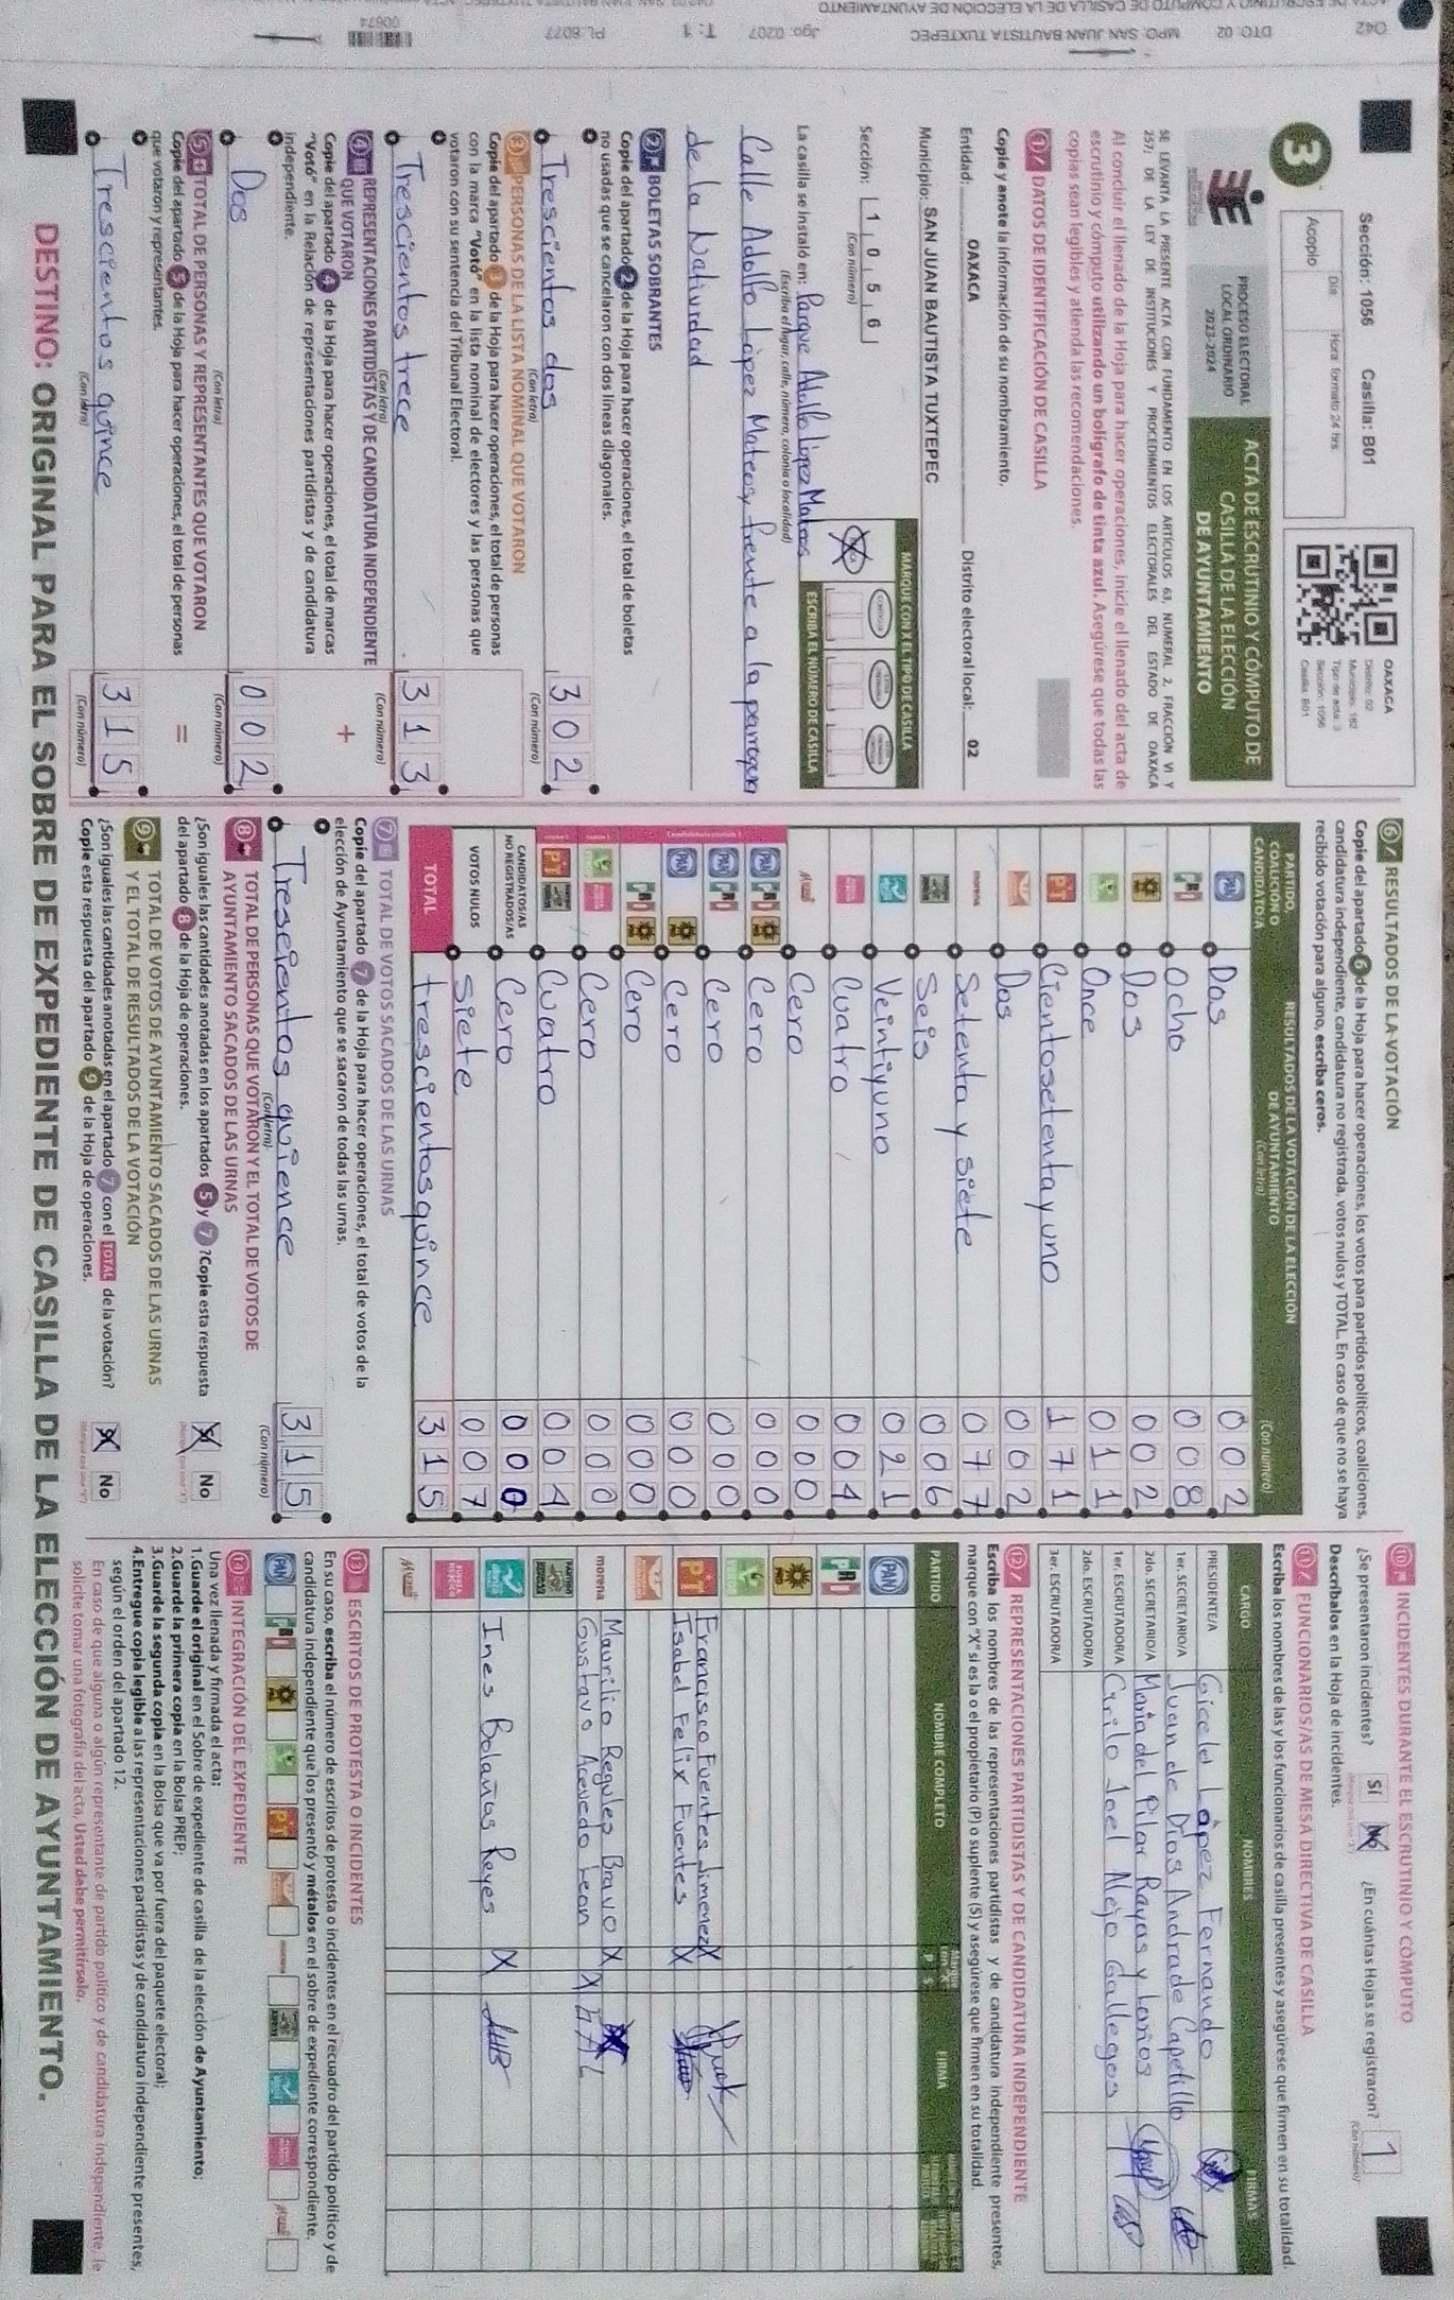 Sección: 1056 Casilla: B01
Día Hora formato 24 hrs
Acopio
OAXACA
Distrito: 02
Municipio: 182
Tipo de acta: 3
Sección: 1056
Casilla: B01
3
PROCESO ELECTORAL
LOCAL ORDINARIO
2023-2024
ACTA DE ESCRUTINIO Y CÓMPUTO DE
CASILLA DE LA ELECCIÓN
DE AYUNTAMIENTO
SE LEVANTA LA PRESENTE ACTA CON FUNDAMENTO EN LOS ARTÍCULOS 63, NUMERAL 2, FRACCIÓN VI Y
257; DE LA LEY DE INSTITUCIONES Y PROCEDIMIENTOS ELECTORALES DEL ESTADO DE OAXACA
Al concluir el llenado de la Hoja para hacer operaciones, inicie el llenado del acta de
escrutinio y cómputo utilizando un bolígrafo de tinta azul. Asegúrese que todas las
copias sean legibles y atienda las recomendaciones.
1 DATOS DE IDENTIFICACIÓN DE CASILLA
Copie y anote la información de su nombramiento.
Entidad: OAXACA Distrito electoral local: 02
Municipio: SAN JUAN BAUTISTA TUXTEPEC
Sección: 1 0 5 6
(Con número)
MARQUE CON X EL TIPO DE CASILLA
ESCRIBA EL NÚMERO DE CASILLA
La casilla se instaló en: Parque Adolfo López Mateos
(Escriba el lugar, calle, número, colonia o localidad)
Calle Adolfo López Mateos, frente a la parroquia
de la Natividad
2 BOLETAS SOBRANTES
Copie del apartado 2 de la Hoja para hacer operaciones, el total de boletas
no usadas que se cancelaron con dos líneas diagonales.
Trescientos dos 302
(Con letra) (Con número)
3 PERSONAS DE LA LISTA NOMINAL QUE VOTARON
Copie del apartado 3 de la Hoja para hacer operaciones, el total de personas
con la marca "Votó" en la lista nominal de electores y las personas que
votaron con su sentencia del Tribunal Electoral.
Trescientos trece 313
(Con letra) (Con número)
4 REPRESENTACIONES PARTIDISTAS Y DE CANDIDATURA INDEPENDIENTE
QUE VOTARON
Copie del apartado 4 de la Hoja para hacer operaciones, el total de marcas
"Votó" en la Relación de representaciones partidistas y de candidatura
independiente.
+
Dos 002
(Con letra) (Con número)
5 TOTAL DE PERSONAS Y REPRESENTANTES QUE VOTARON
Copie del apartado 5 de la Hoja para hacer operaciones, el total de personas
que votaron y representantes.
=
Trescientos quince 315
(Con letra) (Con número)
6 RESULTADOS DE LA VOTACIÓN
Copie del apartado 6 de la Hoja para hacer operaciones, los votos para partidos políticos, coaliciones,
candidatura independiente, candidatura no registrada, votos nulos y TOTAL. En caso de que no se haya
recibido votación para alguno, escriba ceros.
PARTIDO,
COALICIÓN O
CANDIDATO/A
RESULTADOS DE LA VOTACIÓN DE LA ELECCIÓN
DE AYUNTAMIENTO
(Con letra) (Con número)
PAN Dos 002
PRI Ocho 008
PRD Dos 002
Once 011
PT Cientosetentayuno 171
Dos 002
morena Setenta y siete 077
Seis 006
Veintiyuno 021
Cuatro 004
Cero 000
PAN PRI PRD Cero 000
PAN PRI Cero 000
PAN PRD Cero 000
PRI PRD Cero 000
Cero 000
PT Cuatro 004
CANDIDATOS/AS
NO REGISTRADOS/AS Cero 000
VOTOS NULOS Siete 007
TOTAL trescientos quince 315
7 TOTAL DE VOTOS SACADOS DE LAS URNAS
Copie del apartado 7 de la Hoja para hacer operaciones, el total de votos de la
elección de Ayuntamiento que se sacaron de todas las urnas.
Trescientos quience 315
(Con letra) (Con número)
8 TOTAL DE PERSONAS QUE VOTARON Y EL TOTAL DE VOTOS DE
AYUNTAMIENTO SACADOS DE LAS URNAS
¿Son iguales las cantidades anotadas en los apartados 5 y 7? Copie esta respuesta
del apartado 8 de la Hoja de operaciones.
Sí No
9 TOTAL DE VOTOS DE AYUNTAMIENTO SACADOS DE LAS URNAS
Y EL TOTAL DE RESULTADOS DE LA VOTACIÓN
¿Son iguales las cantidades anotadas en el apartado 7 con el TOTAL de la votación?
Copie esta respuesta del apartado 9 de la Hoja de operaciones.
Sí No
10 INCIDENTES DURANTE EL ESCRUTINIO Y CÓMPUTO
¿Se presentaron incidentes? Sí No ¿En cuántas Hojas se registraron? 1
(Con número)
Descríbalos en la Hoja de incidentes.
11 FUNCIONARIOS/AS DE MESA DIRECTIVA DE CASILLA
Escriba los nombres de las y los funcionarios de casilla presentes y asegúrese que firmen en su totalidad.
CARGO NOMBRES FIRMAS
PRESIDENTE/A Gicela López Fernando
1er. SECRETARIO/A Juan de Dios Andrade Capetillo
2do. SECRETARIO/A María del Pilar Rayas y Larios
1er. ESCRUTADOR/A Cirilo Joel Alejo Gallegos
2do. ESCRUTADOR/A
3er. ESCRUTADOR/A
12 REPRESENTACIONES PARTIDISTAS Y DE CANDIDATURA INDEPENDIENTE
Escriba los nombres de las representaciones partidistas y de candidatura independiente presentes,
marque con "X" si es la o el propietario (P) o suplente (S) y asegúrese que firmen en su totalidad.
PARTIDO NOMBRE COMPLETO P S FIRMA
PAN
PRI
PRD
PT Francisco Fuentes Jimenez X
Isabel Felix Fuentes X
morena Maurilio Regules Bravo X
Gustavo Acevedo Leon X GAL
Ines Bolaños Reyes X
13 ESCRITOS DE PROTESTA O INCIDENTES
En su caso, escriba el número de escritos de protesta o incidentes en el recuadro del partido político y de
candidatura independiente que los presentó y métalos en el sobre de expediente correspondiente.
PAN PRI PT
14 INTEGRACIÓN DEL EXPEDIENTE
Una vez llenada y firmada el acta:
1.Guarde el original en el Sobre de expediente de casilla de la elección de Ayuntamiento;
2.Guarde la primera copia en la Bolsa PREP;
3.Guarde la segunda copia en la Bolsa que va por fuera del paquete electoral;
4.Entregue copia legible a las representaciones partidistas y de candidatura independiente presentes,
según el orden del apartado 12.
En caso de que alguna o algún representante de partido político y de candidatura independiente, le
solicite tomar una fotografía del acta, Usted debe permitírselo.
DESTINO: ORIGINAL PARA EL SOBRE DE EXPEDIENTE DE CASILLA DE LA ELECCIÓN DE AYUNTAMIENTO.
042 DTO: 02 MPO: SAN JUAN BAUTISTA TUXTEPEC Jgo: 0207 T: 1 PL: 6077
00674
ACTA DE ESCRUTINIO Y CÓMPUTO DE CASILLA DE LA ELECCIÓN DE AYUNTAMIENTO